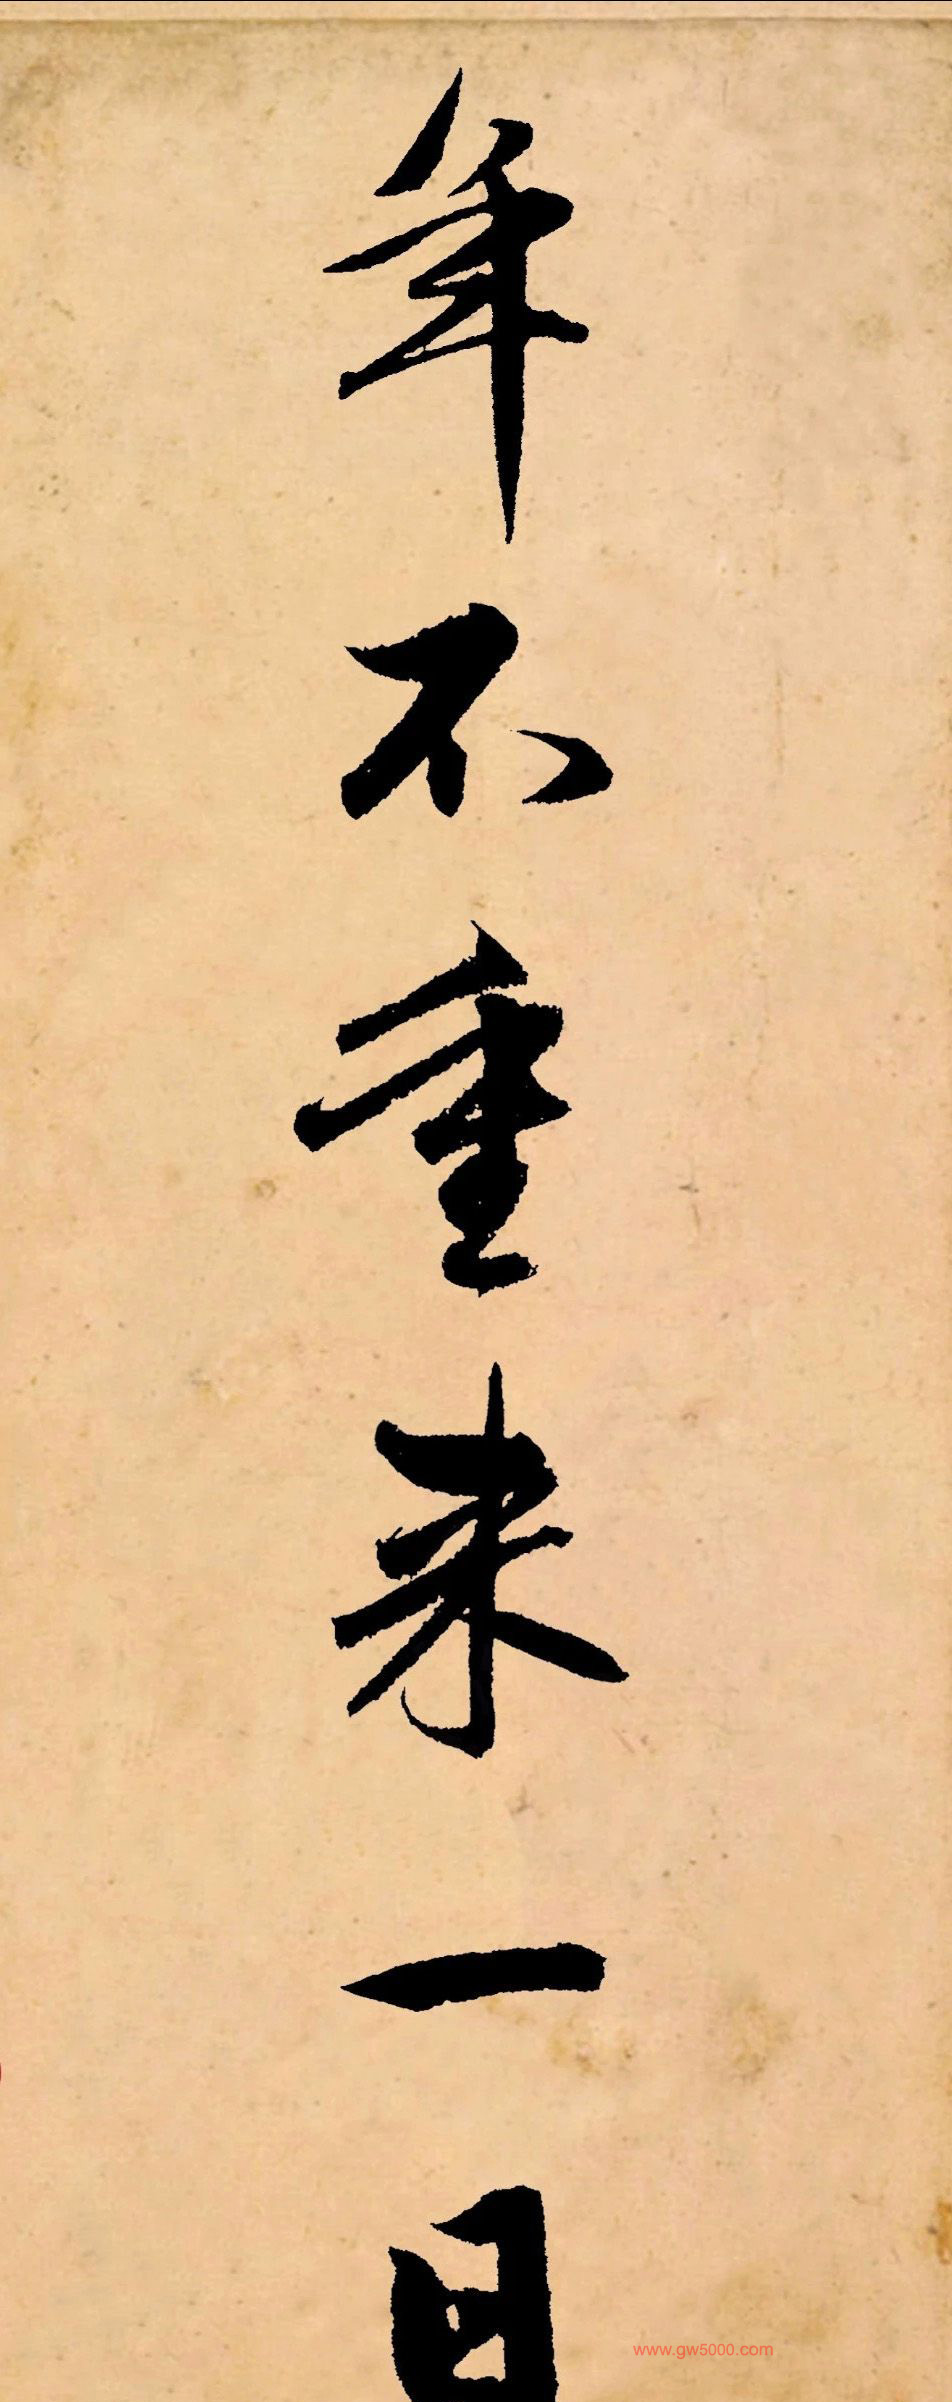 年不重来一日
www.gw5000.com